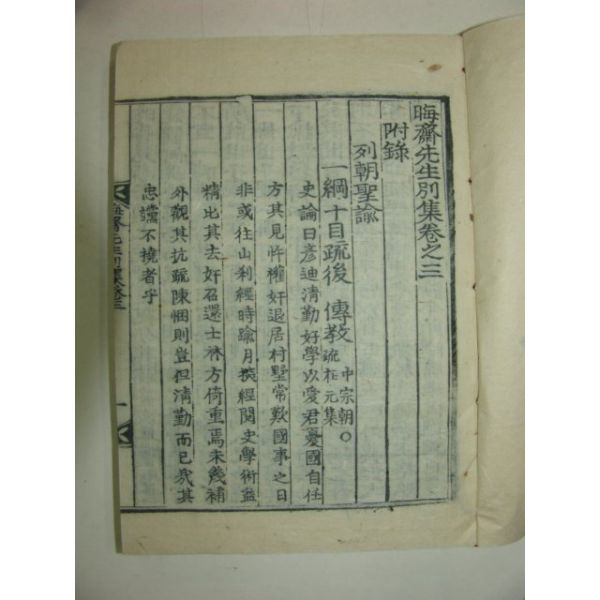 晦齋先生別集卷之三
附錄
列朝聖諭
一綱十目疏後 傳敎 中宗朝○疏在元集
史論曰彥迪淸勤好學以愛君憂國自任
方其見忤權奸退居村墅常歎國事之日
非或往山利經時踰月披經閱史學術益
精出其去奸召還士林方倚重焉未幾補
外觀其抗疏陳悃則豈但淸勤而已哉其
忠讜不撓者乎
晦齋先生別集卷三
一